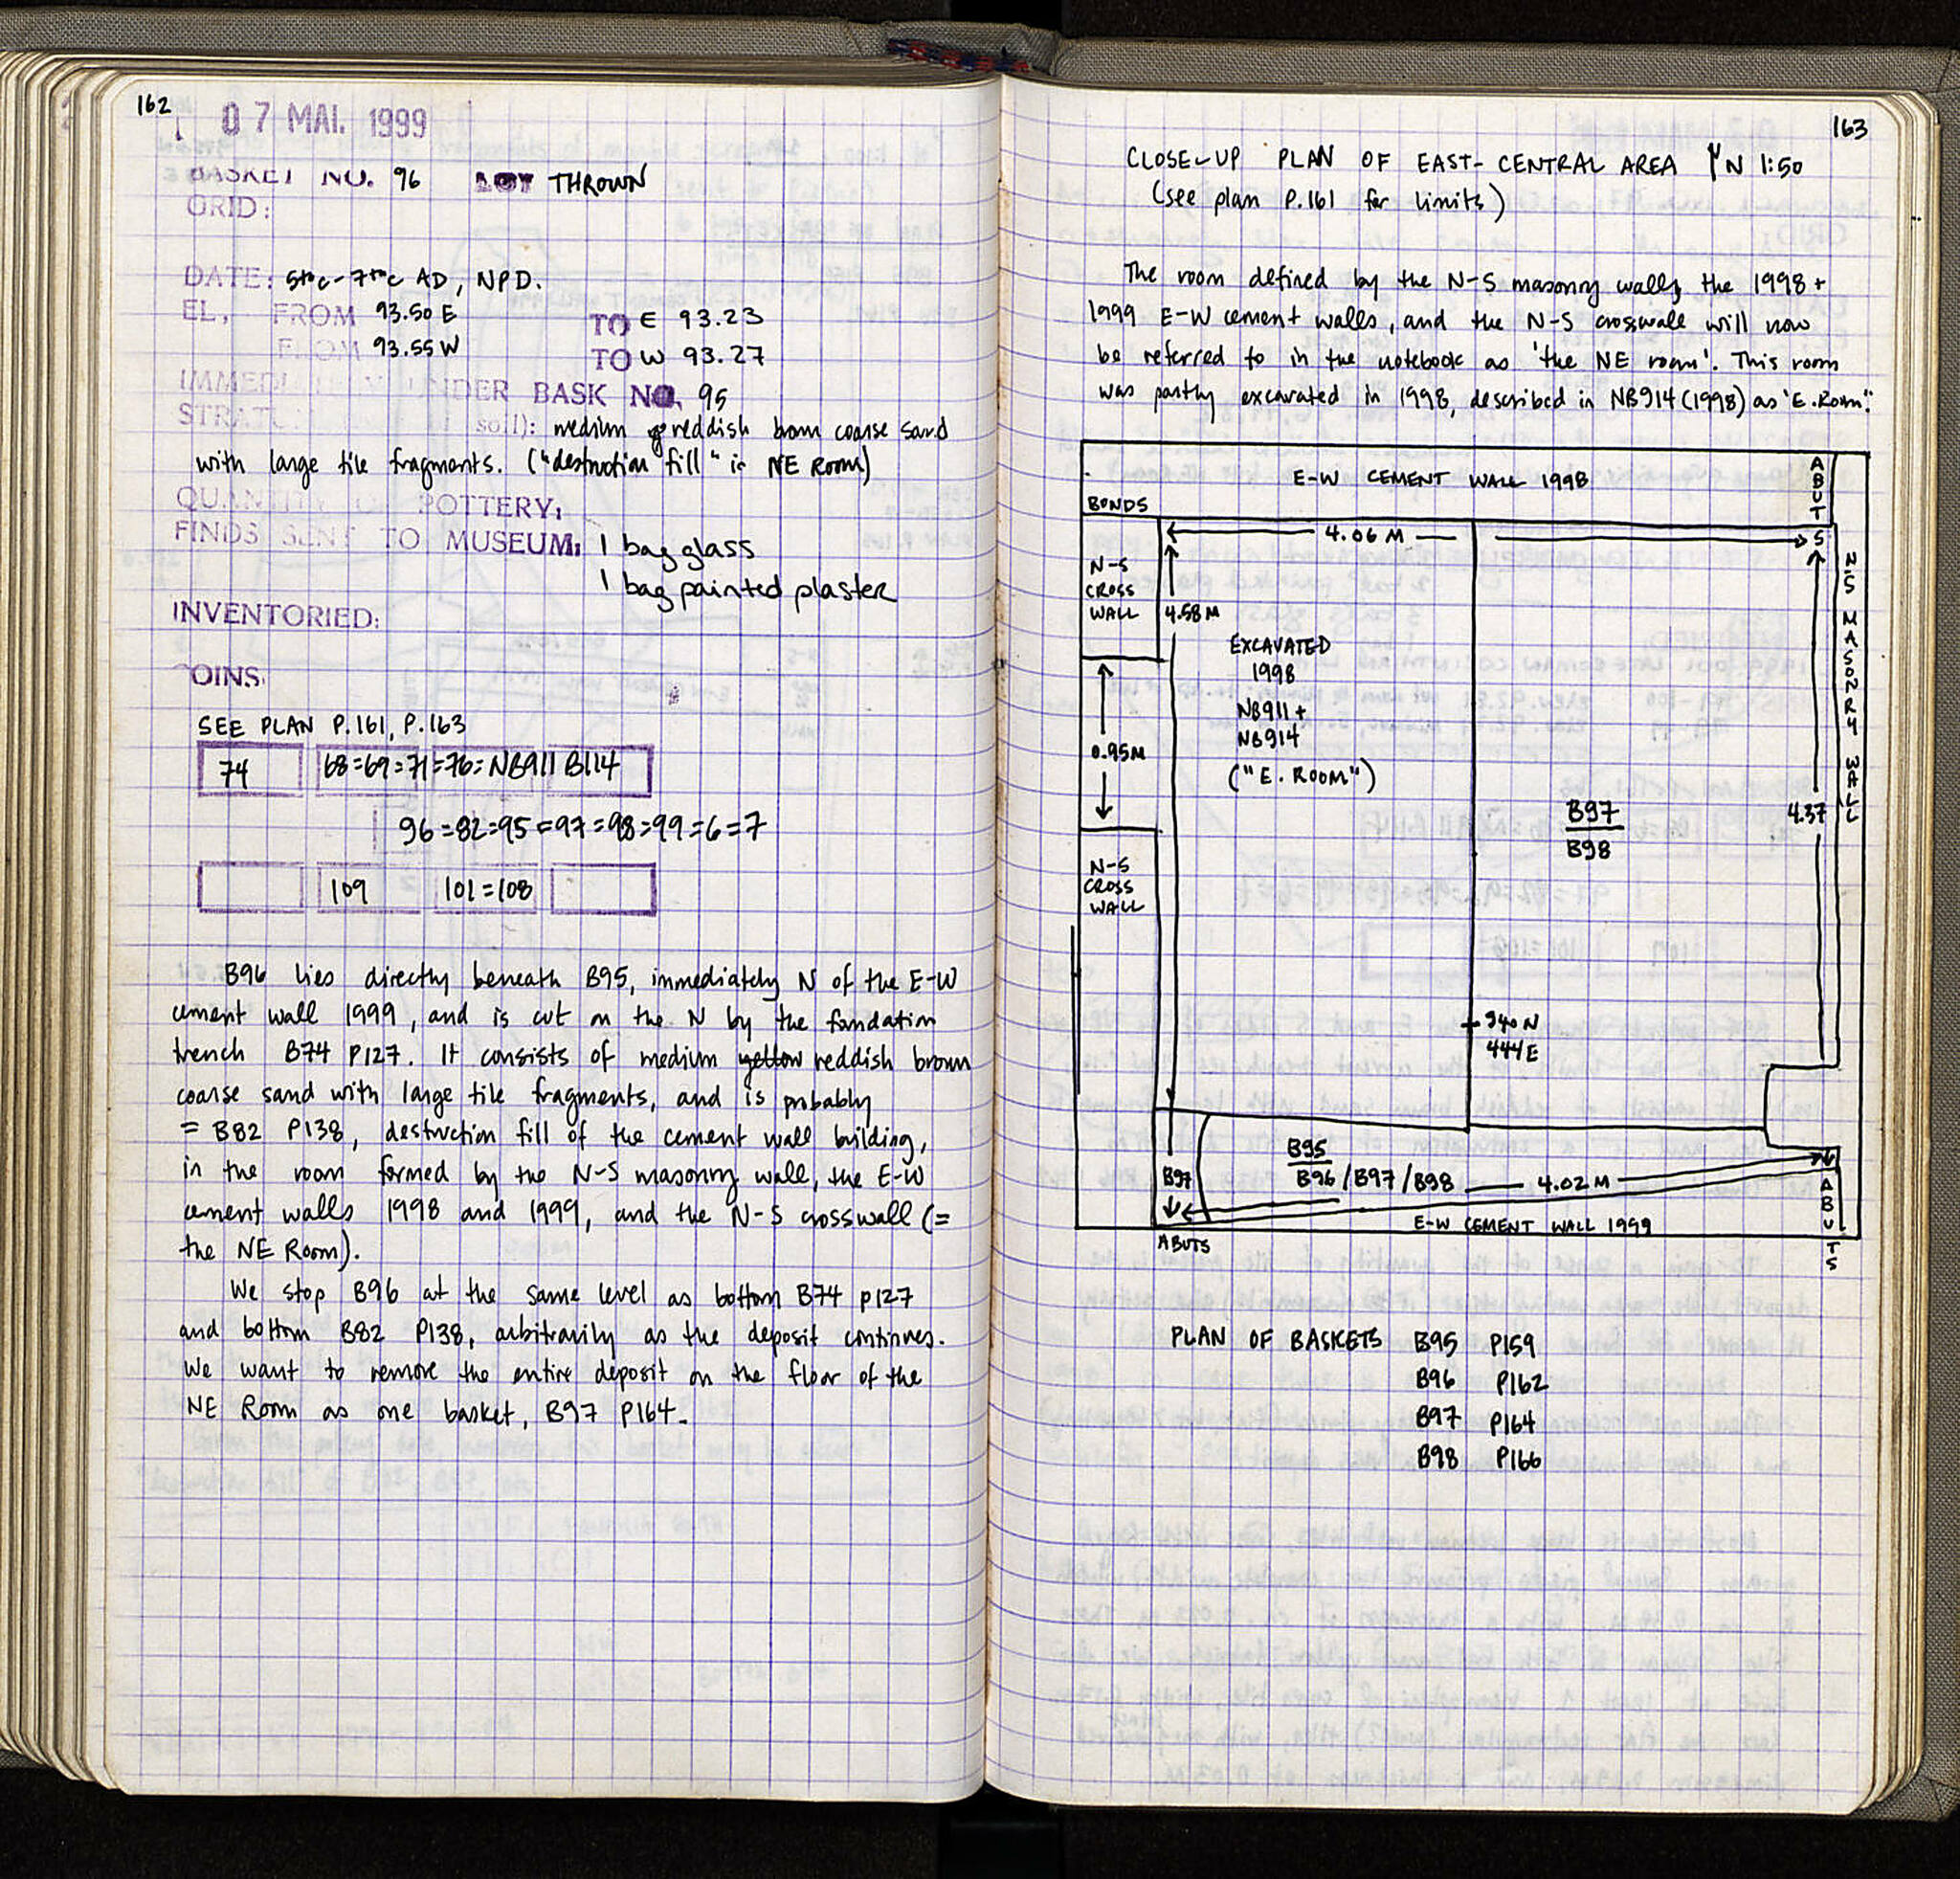 162
07 MAI. 1999
BASKET NO. 96 LOT THROWN
GRID:
DATE: 5thc-7thc AD, NPD.
EL, FROM 93.50 E TO E 93.23
FROM 93.55 W TO W 93.27
IMMEDI UNDER BASK NO. 95
STRAT soil): medium reddish brown coarse sand
with large tile fragments. ("destruction fill" in NE Room)
QUANTITY OF POTTERY:
FINDS SENT TO MUSEUM: 1 bag glass
1 bag painted plaster
INVENTORIED:
OINS
SEE PLAN P.161, P.163
74 68=69=71=76=NB911 B114
96=82=95=97=98=99=6=7
109 101=108
B96 lies directly beneath B95, immediately N of the E-W
cement wall 1999, and is cut on the N by the foundation
trench B74 P127. It consists of medium yellow reddish brown
coarse sand with large tile fragments, and is probably
= B82 P138, destruction fill of the cement wall building,
in the room formed by the N-S masonry wall, the E-W
cement walls 1998 and 1999, and the N-S crosswall (=
the NE Room).
We stop B96 at the same level as bottom B74 P127
and bottom B82 P138, arbitrarily as the deposit continues.
We want to remove the entire deposit on the floor of the
NE Room as one basket, B97 P164.
163
CLOSE-UP PLAN OF EAST-CENTRAL AREA N 1:50
(see plan P.161 for limits)
The room defined by the N-S masonry wall, the 1998 +
1999 E-W cement walls, and the N-S crosswall will now
be referred to in the notebook as 'the NE room'. This room
was partly excavated in 1998, described in NB914 (1998) as 'E. Room'.
E-W CEMENT WALL 1998
ABUTS
BONDS
4.06 M
N-S
CROSS
WALL
4.58 M
N-S MASONRY WALL
EXCAVATED
1998
NB911+
NB914
("E. ROOM")
0.95M
B97
B98
4.37
N-S
CROSS
WALL
940 N
444 E
B95
B96/B97/B98
4.02 M
B97
E-W CEMENT WALL 1999
ABUTS
ABUTS
PLAN OF BASKETS B95 P159
B96 P162
B97 P164
B98 P166